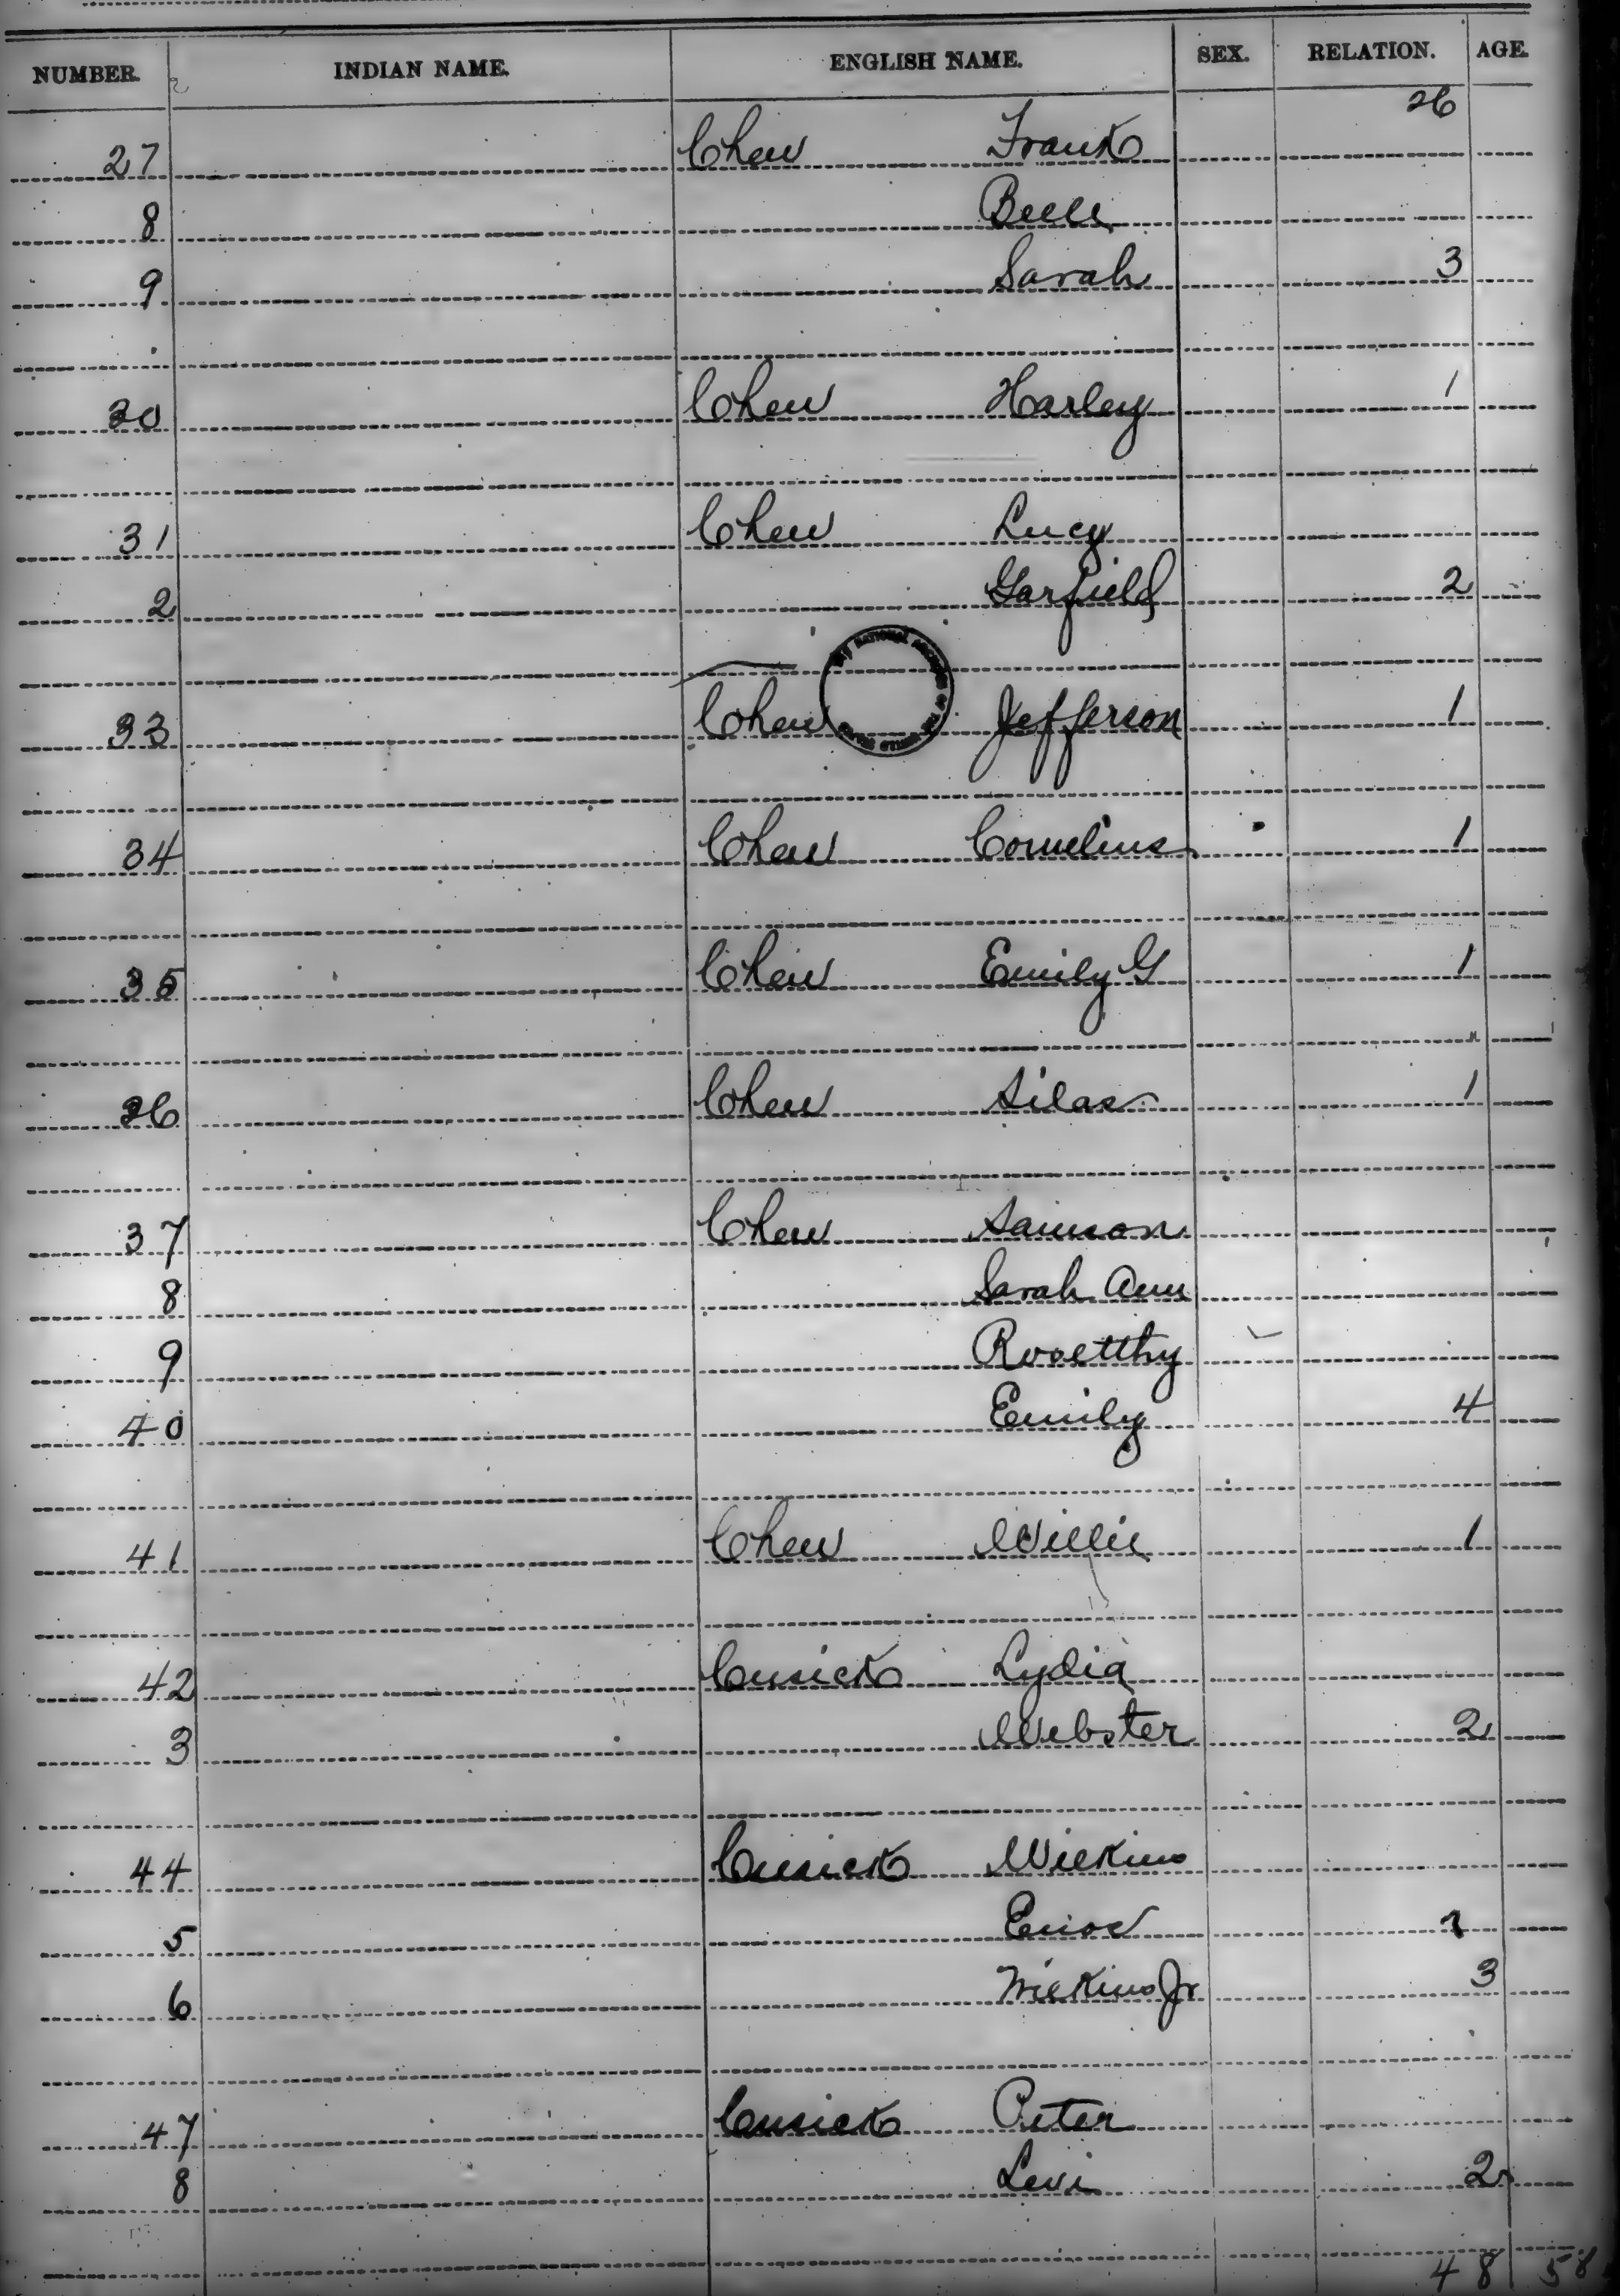 NUMBER. INDIAN NAME. ENGLISH NAME. SEX. RELATION. AGE.
26
27 Chew Frank
8 Belle
9 Sarah 3
30 Chew Harley 1
31 Chew Lucy
2 Garfield 2
33 Chew Jefferson 1
34 Chew Cornelius 1
35 Chew Emily G 1
36 Chew Silas 1
37 Chew Samson
8 Sarah Ann
9
40 Emily 4
41 Chew Willie 1
42 Cusick Lydia
3 Webster 2
44 Cusick Wilkins
5 Enos
6 Wilkins Jr 3
47 Cusick Peter
8 Levi 2
48 58